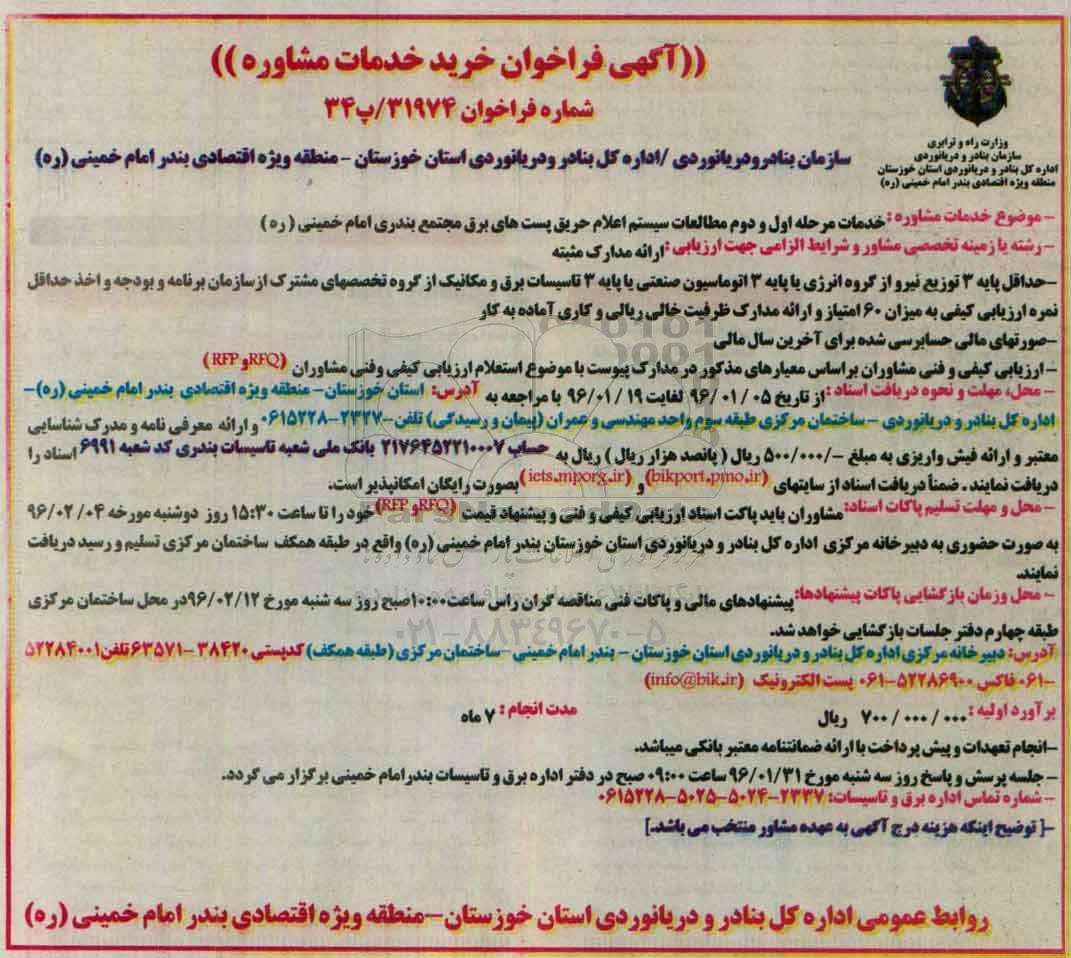 ((آگهی فراخوان خرید خدمات مشاوره ))
شماره فراخوان ۳۱۹۷۴/پ۳۴
وزارت راه و ترابری
سازمان بنادر و دریانوردی
اداره کل بنادر و دریانوردی استان خوزستان
منطقه ویژه اقتصادی بندر امام خمینی (ره)
سازمان بنادرودریانوردی /اداره کل بنادر ودریانوردی استان خوزستان - منطقه ویژه اقتصادی بندر امام خمینی (ره)
- موضوع خدمات مشاوره : خدمات مرحله اول و دوم مطالعات سیستم اعلام حریق پست های برق مجتمع بندری امام خمینی ( ره )
- رشته یا زمینه تخصصی مشاور و شرایط الزامی جهت ارزیابی : ارائه مدارک مثبته
-حداقل پایه ۳ توزیع نیرو از گروه انرژی یا پایه ۳ اتوماسیون صنعتی یا پایه ۳ تاسیسات برق و مکانیک از گروه تخصصهای مشترک ازسازمان برنامه و بودجه و اخذ حداقل
نمره ارزیابی کیفی به میزان ۶۰ امتیاز و ارائه مدارک ظرفیت خالی ریالی و کاری آماده به کار
-صورتهای مالی حسابرسی شده برای آخرین سال مالی
- ارزیابی کیفی و فنی مشاوران براساس معیارهای مذکور در مدارک پیوست با موضوع استعلام ارزیابی کیفی وفنی مشاوران (RFQو RFP)
- محل، مهلت و نحوه دریافت اسناد : از تاریخ ۰۵ / ۰۱ / ۹۶ لغایت ۱۹ / ۹۶/۰۱ با مراجعه به آدرس: استان خوزستان- منطقه ویژه اقتصادی بندر امام خمینی (ره)-
اداره کل بنادر و دریانوردی - ساختمان مرکزی طبقه سوم واحد مهندسی و عمران (پیمان و رسیدگی) تلفن-۲۳۲۷-۰۶۱۵۲۲۸ و ارائه معرفی نامه و مدرک شناسایی
معتبر و ارائه فیش واریزی به مبلغ -/۵۰۰/۰۰۰ ریال ( پانصد هزار ریال ) ریال به حساب ۲۱۷۶۴۵۲۲۱۰۰۰۷ بانک ملی شعبه تاسیسات بندری کد شعبه ۶۹۹۱ اسناد را
دریافت نمایند . ضمناً دریافت اسناد از سایتهای (bikport.pmo.ir) و (iets.mporg.ir) بصورت رایگان امکانپذیر است.
- محل و مهلت تسلیم پاکات اسناد: مشاوران باید پاکت اسناد ارزیابی کیفی و فنی و پیشنهاد قیمت (RFQو RFP) خود را تا ساعت ۱۵:۳۰ روز دوشنبه مورخه ۰۴/ ۹۶/۰۲
به صورت حضوری به دبیرخانه مرکزی اداره کل بنادر و دریانوردی استان خوزستان بندر امام خمینی (ره) واقع در طبقه همکف ساختمان مرکزی تسلیم و رسید دریافت
نمایند.
- محل وزمان بازگشایی پاکات پیشنهادها: پیشنهادهای مالی و پاکات فنی مناقصه گران راس ساعت۱۰:۰۰صبح روز سه شنبه مورخ ۹۶/۰۲/۱۲در محل ساختمان مرکزی
طبقه چهارم دفتر جلسات بازگشایی خواهد شد.
آدرس: دبیرخانه مرکزی اداره کل بنادر و دریانوردی استان خوزستان - بندر امام خمینی -ساختمان مرکزی (طبقه همکف) کدپستی ۳۸۴۲۰ -۶۳۵۷۱ تلفن ۵۲۲۸۴۰۰۱
-۰۶۱ فاکس ۵۲۲۸۶۹۰۰-۰۶۱ پست الکترونیک (info@bik.ir)
برآورد اولیه : ۰۰۰ / ۰۰۰ / ۷۰۰ ریال
مدت انجام : ۷ ماه
-انجام تعهدات و پیش پرداخت با ارائه ضمانتنامه معتبر بانکی میباشد.
- جلسه پرسش و پاسخ روز سه شنبه مورخ ۹۶/۰۱/۳۱ ساعت ۰۹:۰۰ صبح در دفتر اداره برق و تاسیسات بندر امام خمینی برگزار می گردد.
- شماره تماس اداره برق و تاسیسات: ۲۳۳۷-۵۰۲۴-۵۰۲۵-۰۶۱۵۲۲۸
-[ توضیح اینکه هزینه درج آگهی به عهده مشاور منتخب می باشد.]
روابط عمومی اداره کل بنادر و دریانوردی استان خوزستان-منطقه ویژه اقتصادی بندر امام خمینی (ره)
۰۲۱-۸۸۳۴۹۶۷۰-۵